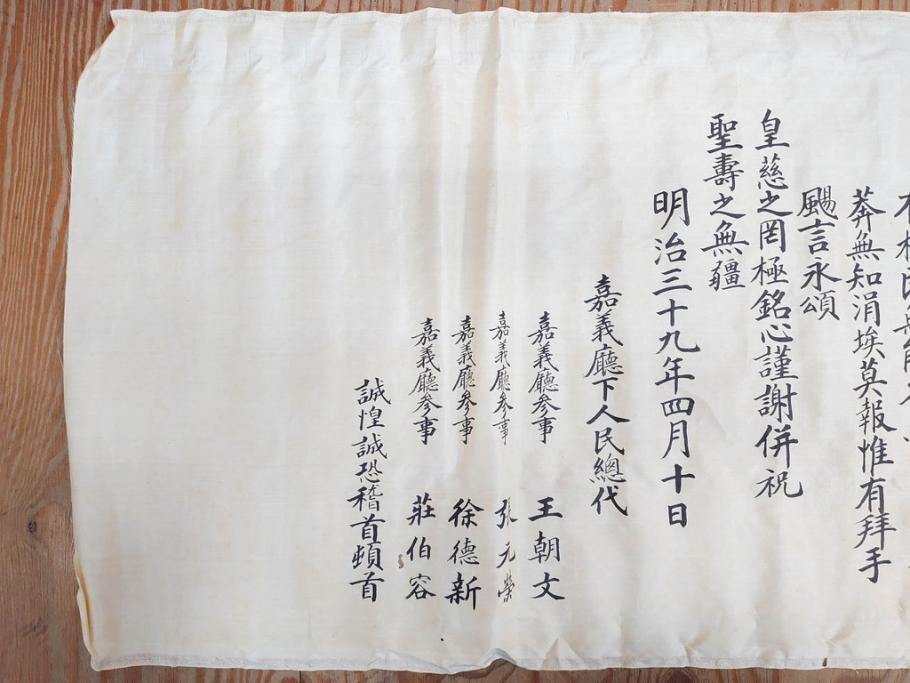 莽無知涓埃莫報惟有拜手
颺言永頌
皇慈之罔極銘心謹謝併祝
聖壽之無疆
明治三十九年四月十日
嘉義廳下人民總代
嘉義廳參事 王朝文
嘉義廳參事 張元榮
嘉義廳參事 徐德新
嘉義廳參事 莊伯容
誠惶誠恐稽首頓首